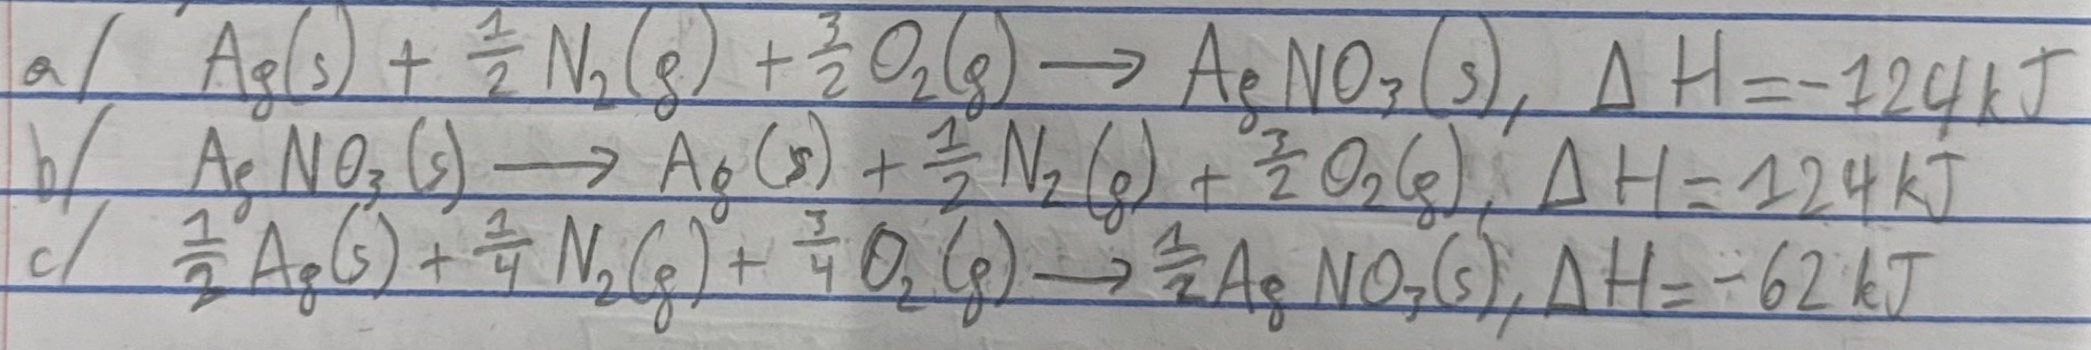 a/ Ag(s) + 1/2 N₂(g) + 3/2 O₂(g) → AgNO₃(s), ΔH = -124kJ
b/ AgNO₃(s) → Ag(s) + 1/2 N₂(g) + 3/2 O₂(g), ΔH = 124kJ
c/ 1/2 Ag(s) + 1/4 N₂(g) + 3/4 O₂(g) → 1/2 AgNO₃(s), ΔH = -62kJ